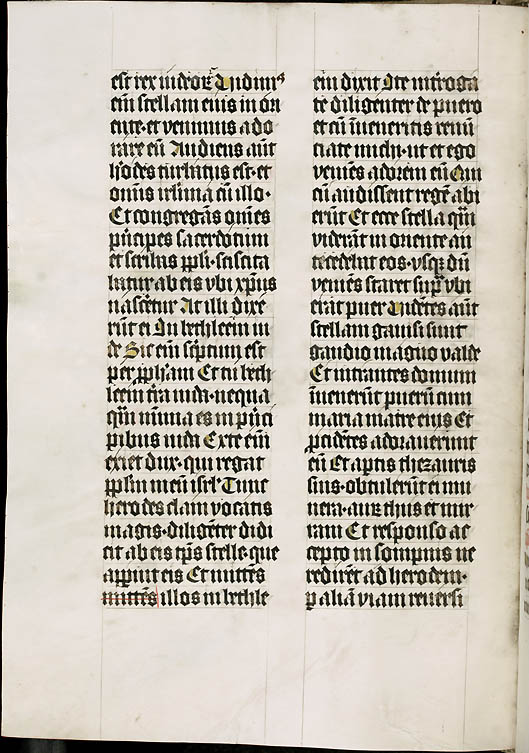 est rex iudeorꝝ Uidimꝰ
em̄ stellam eius in ori
ente·et venimus ado
rare eū Audiens aūt
h̓odes turbatus est·et
om̄is ir̄lima cū illo·
Et congregās om̄es
prīcipes sacerdotum
et scribas ppl̄i·sciscita
batur ab eis vbi xp̄us
nascēt̄ur At illi dixe
rūt ei In bethleēm iu
de Sic em̄ sc̄ptum est
per ꝓph̄am Et tu beth
leem tr̄a iuda·nequa
qͣm mīnima es in prīci
pibus iuda Ex te em̄
exiet dux·qui regat
ppl̄m meū isrl̓ Tunc
herodes clam vocatis
magis·diligēter didi
cit ab eis tp̄s stelle·que
apparuit eis Et mittēs
mittēs illos in bethle
em dixit Ite int̓roga
te diligenter de puero
et cū īueneritis renū
ciate michi·ut et ego
veniēs adorem eū Qui
cū audissent regē abi
erūt Et ecce stella quā
viderāt in oriente an
tecedebat eos·vsqꝫ dū
veniēs staret supͣ vbi
erat puer Uidētes aūt
stellam gauisi sunt
gaudio magno valde
Et intrantes domum
īuenerūt puerū cum
maria matre eius Et
ꝓcidētes adorauerunt
eū Et aptis thezauris
suis·obtulerūt ei mu
nera·aurū thus et mir
ram Et responso ac
cepto in sompnis ne
redirēt ad herodem·
ꝑ aliā viam reuersi